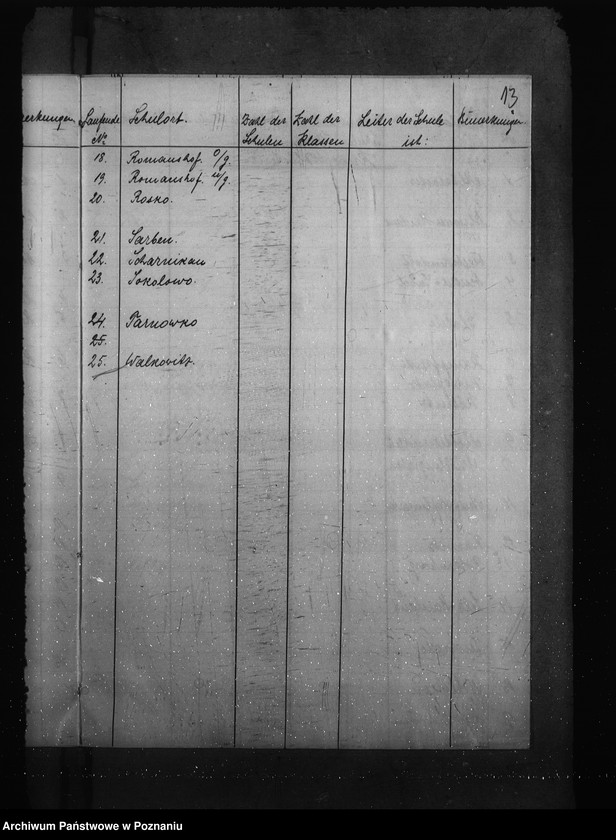 13
Laufende Schulort. Zahl der Zahl der Leiter der Schule Bemerkungen
No Schulen Klassen ist:
18. Romanshof o/g.
19. Romanshof u/g.
20. Rosko.
21. Sarben.
22. Scharnikau
23. Sokolowo.
24. Tarnowko
25.
25. Walkowitz.
Archiwum Państwowe w Poznaniu